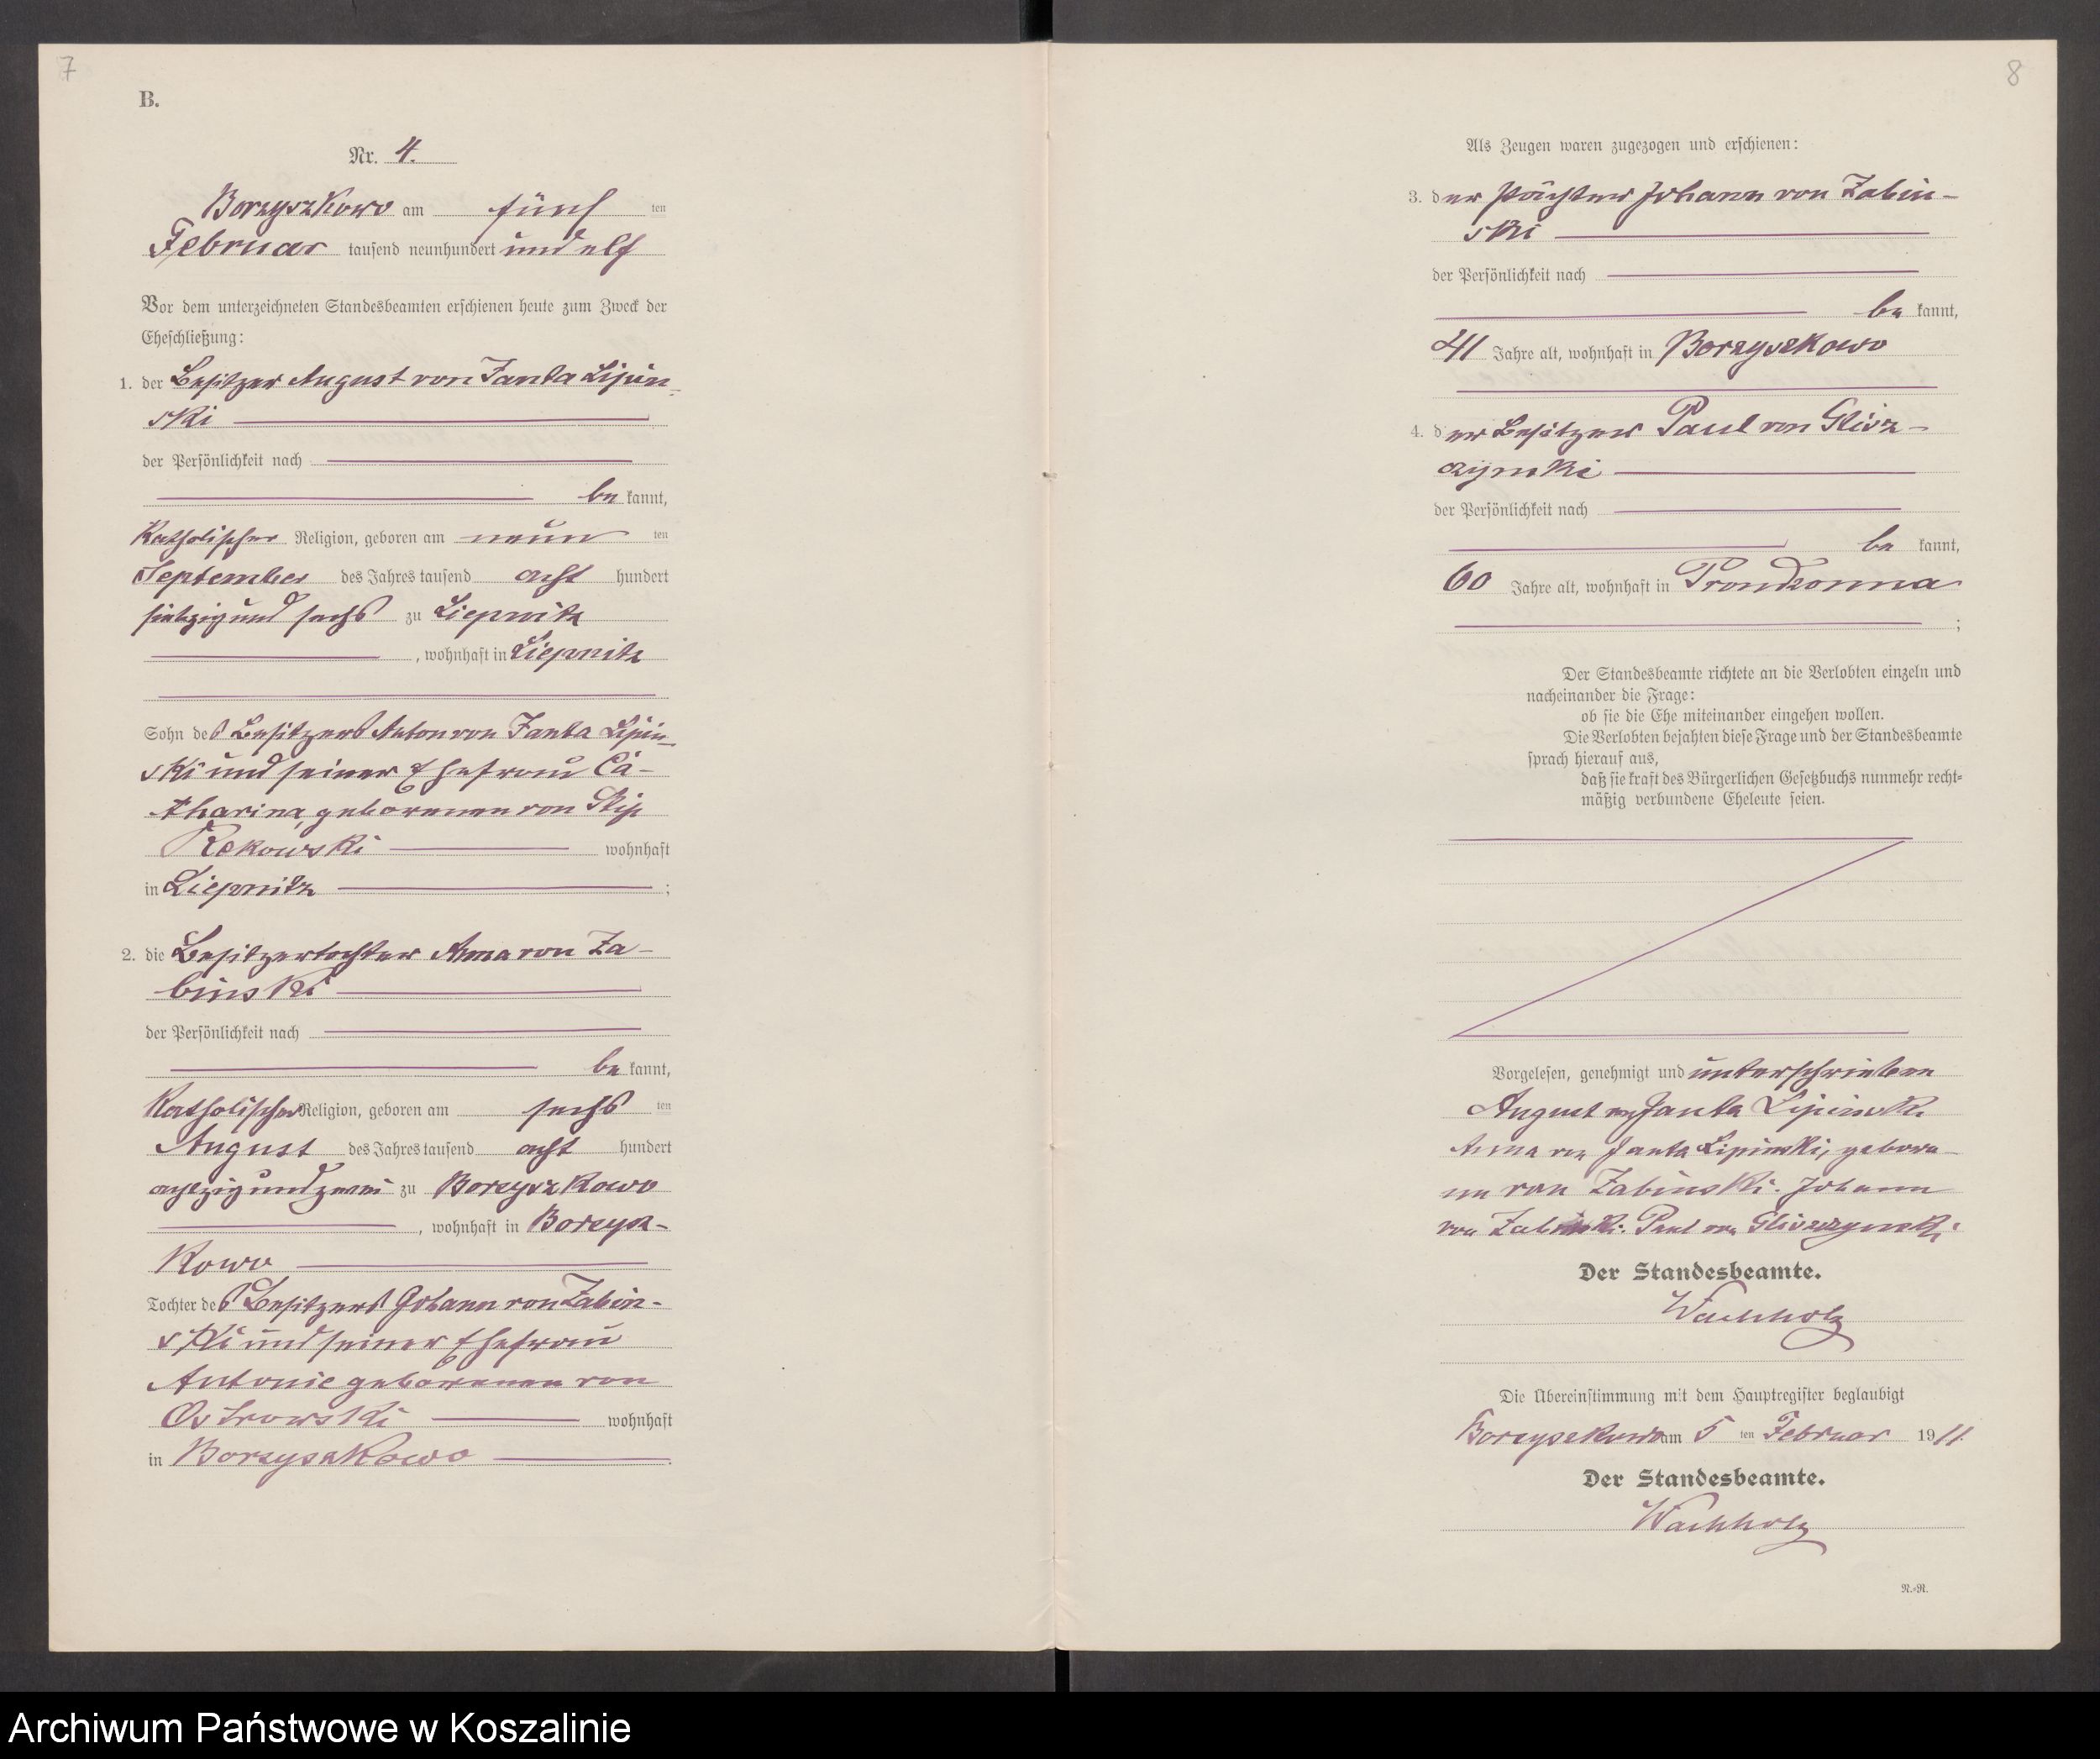 7
B.
Nr. 4.
Borzyszkowo am fünf ten
Februar tausend neunhundert und elf
Vor dem unterzeichneten Standesbeamten erschienen heute zum Zweck der
Eheschließung:
1. der Besitzer August von Janta Lipin-
ski
der Persönlichkeit nach
be kannt,
Katholischer Religion, geboren am neun ten
September des Jahres tausend acht hundert
siebzig und sechs zu Liepnitz
, wohnhaft in Liepnitz
Sohn des Besitzers Anton von Janta Lipin-
ski und seiner Ehefrau Ca-
tharina, geborenen von Skip
Rekowski wohnhaft
in Liepnitz ;
2. die Besitzertochter Anna von Za-
binski
der Persönlichkeit nach
be kannt,
Katholischer Religion, geboren am sechs ten
August des Jahres tausend acht hundert
achtzig und zwei zu Borzyszkowo
, wohnhaft in Borzysz-
kowo
Tochter des Besitzers Johann von Zabin-
ski und seiner Ehefrau
Antonie geborenen von
Ostrowski wohnhaft
in Borzyszkowo .
8
Als Zeugen waren zugezogen und erschienen:
3. der Pächter Johann von Zabin-
ski
der Persönlichkeit nach
be kannt,
41 Jahre alt, wohnhaft in Borzyszkowo
4. der Besitzer Paul von Glisz-
czynski
der Persönlichkeit nach
be kannt,
60 Jahre alt, wohnhaft in Prondzonna
;
Der Standesbeamte richtete an die Verlobten einzeln und
nacheinander die Frage:
ob sie die Ehe miteinander eingehen wollen.
Die Verlobten bejahten diese Frage und der Standesbeamte
sprach hierauf aus,
daß sie kraft des Bürgerlichen Gesetzbuchs nunmehr recht-
mäßig verbundene Eheleute seien.
Vorgelesen, genehmigt und unterschrieben
August von Janta Lipinski
Anna von Janta Lipinski, gebore-
ne von Zabinski. Johann
von Zabinski. Paul von Gliszczynski
Der Standesbeamte.
Wachholz
Die Übereinstimmung mit dem Hauptregister beglaubigt
Borzyszkowo am 5 ten Februar 1911.
Der Standesbeamte.
Wachholz
N.-N.
Archiwum Państwowe w Koszalinie